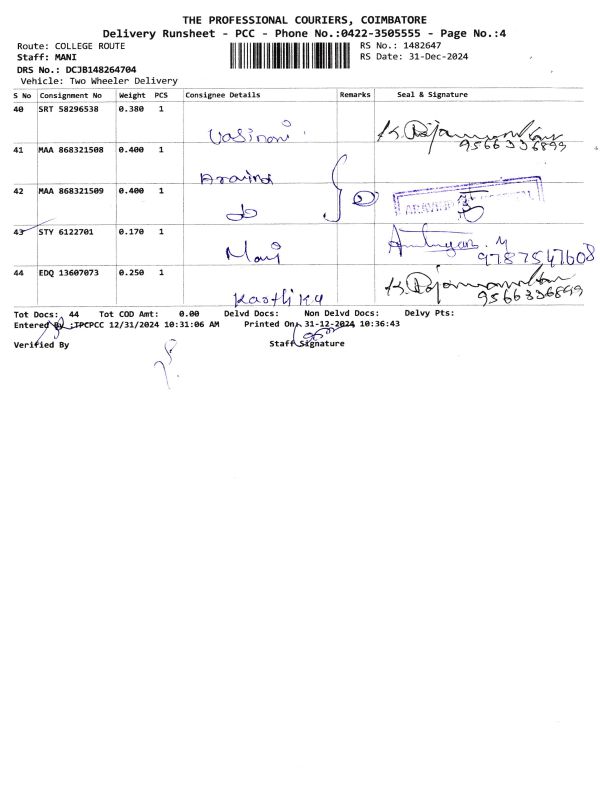 THE PROFESSIONAL COURIERS, COIMBATORE
Delivery Runsheet - PCC - Phone No.:0422-3505555 - Page No.:4
Route: COLLEGE ROUTE RS No.: 1482647
Staff: MANI RS Date: 31-Dec-2024
DRS No.: DCJB148264704
Vehicle: Two Wheeler Delivery
S No Consignment No Weight PCS Consignee Details Remarks Seal & Signature
40 SRT 58296538 0.380 1
9566336899
41 MAA 868321508 0.400 1
Aravind
42 MAA 868321509 0.400 1
do
43 STY 6122701 0.170 1
Mani
9787547608
44 EDQ 13607073 0.250 1
9566336899
Karthika
Tot Docs: 44 Tot COD Amt: 0.00 Delvd Docs: Non Delvd Docs: Delvy Pts:
Entered By :TPCPCC 12/31/2024 10:31:06 AM Printed On: 31-12-2024 10:36:43
Verified By Staff Signature